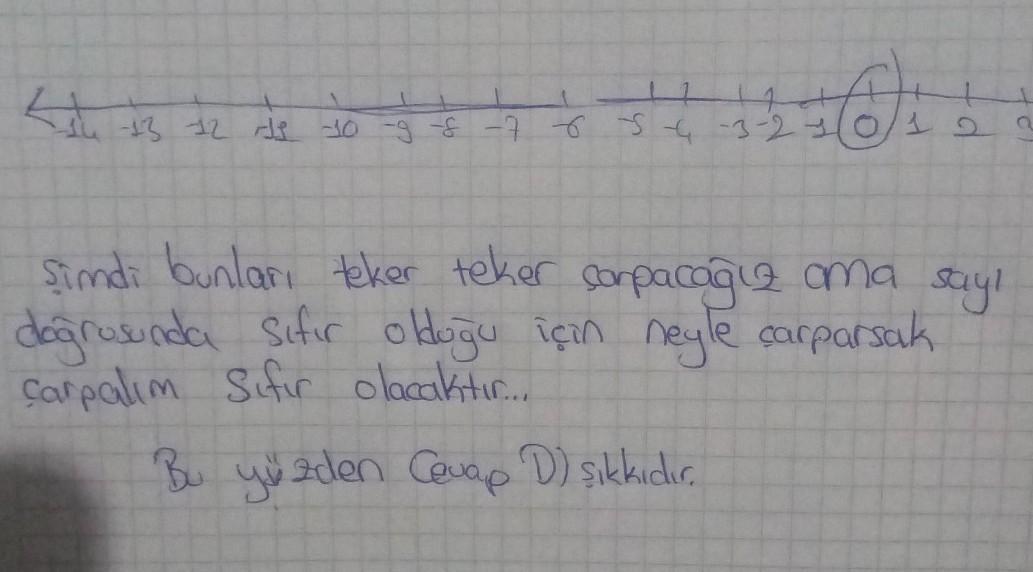 -14 -13 -12 -11 -10 -9 -8 -7 -6 -5 -4 -3 -2 -1 0 1 2 3
Şimdi bunları teker teker çarpacağız ama sayı
doğrusunda sıfır olduğu için neyle çarparsak
çarpalım sıfır olacaktır...
Bu yüzden Cevap D) şıkkıdır.